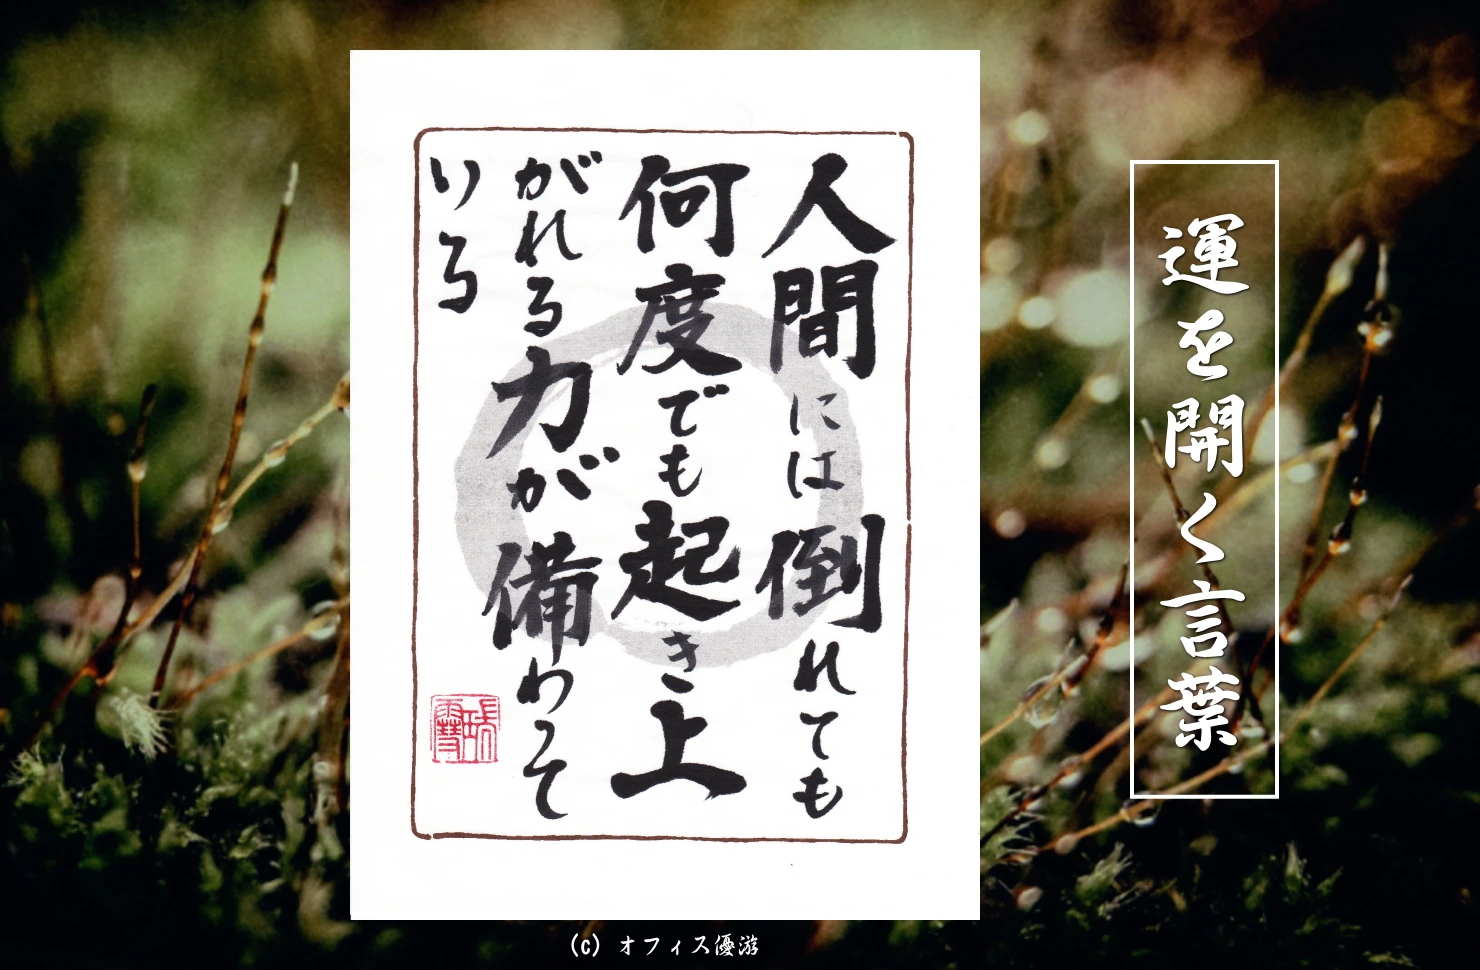 運を開く言葉
人間には倒れても
何度でも起き上
がれる力が備わって
いる
(c) オフィス優游